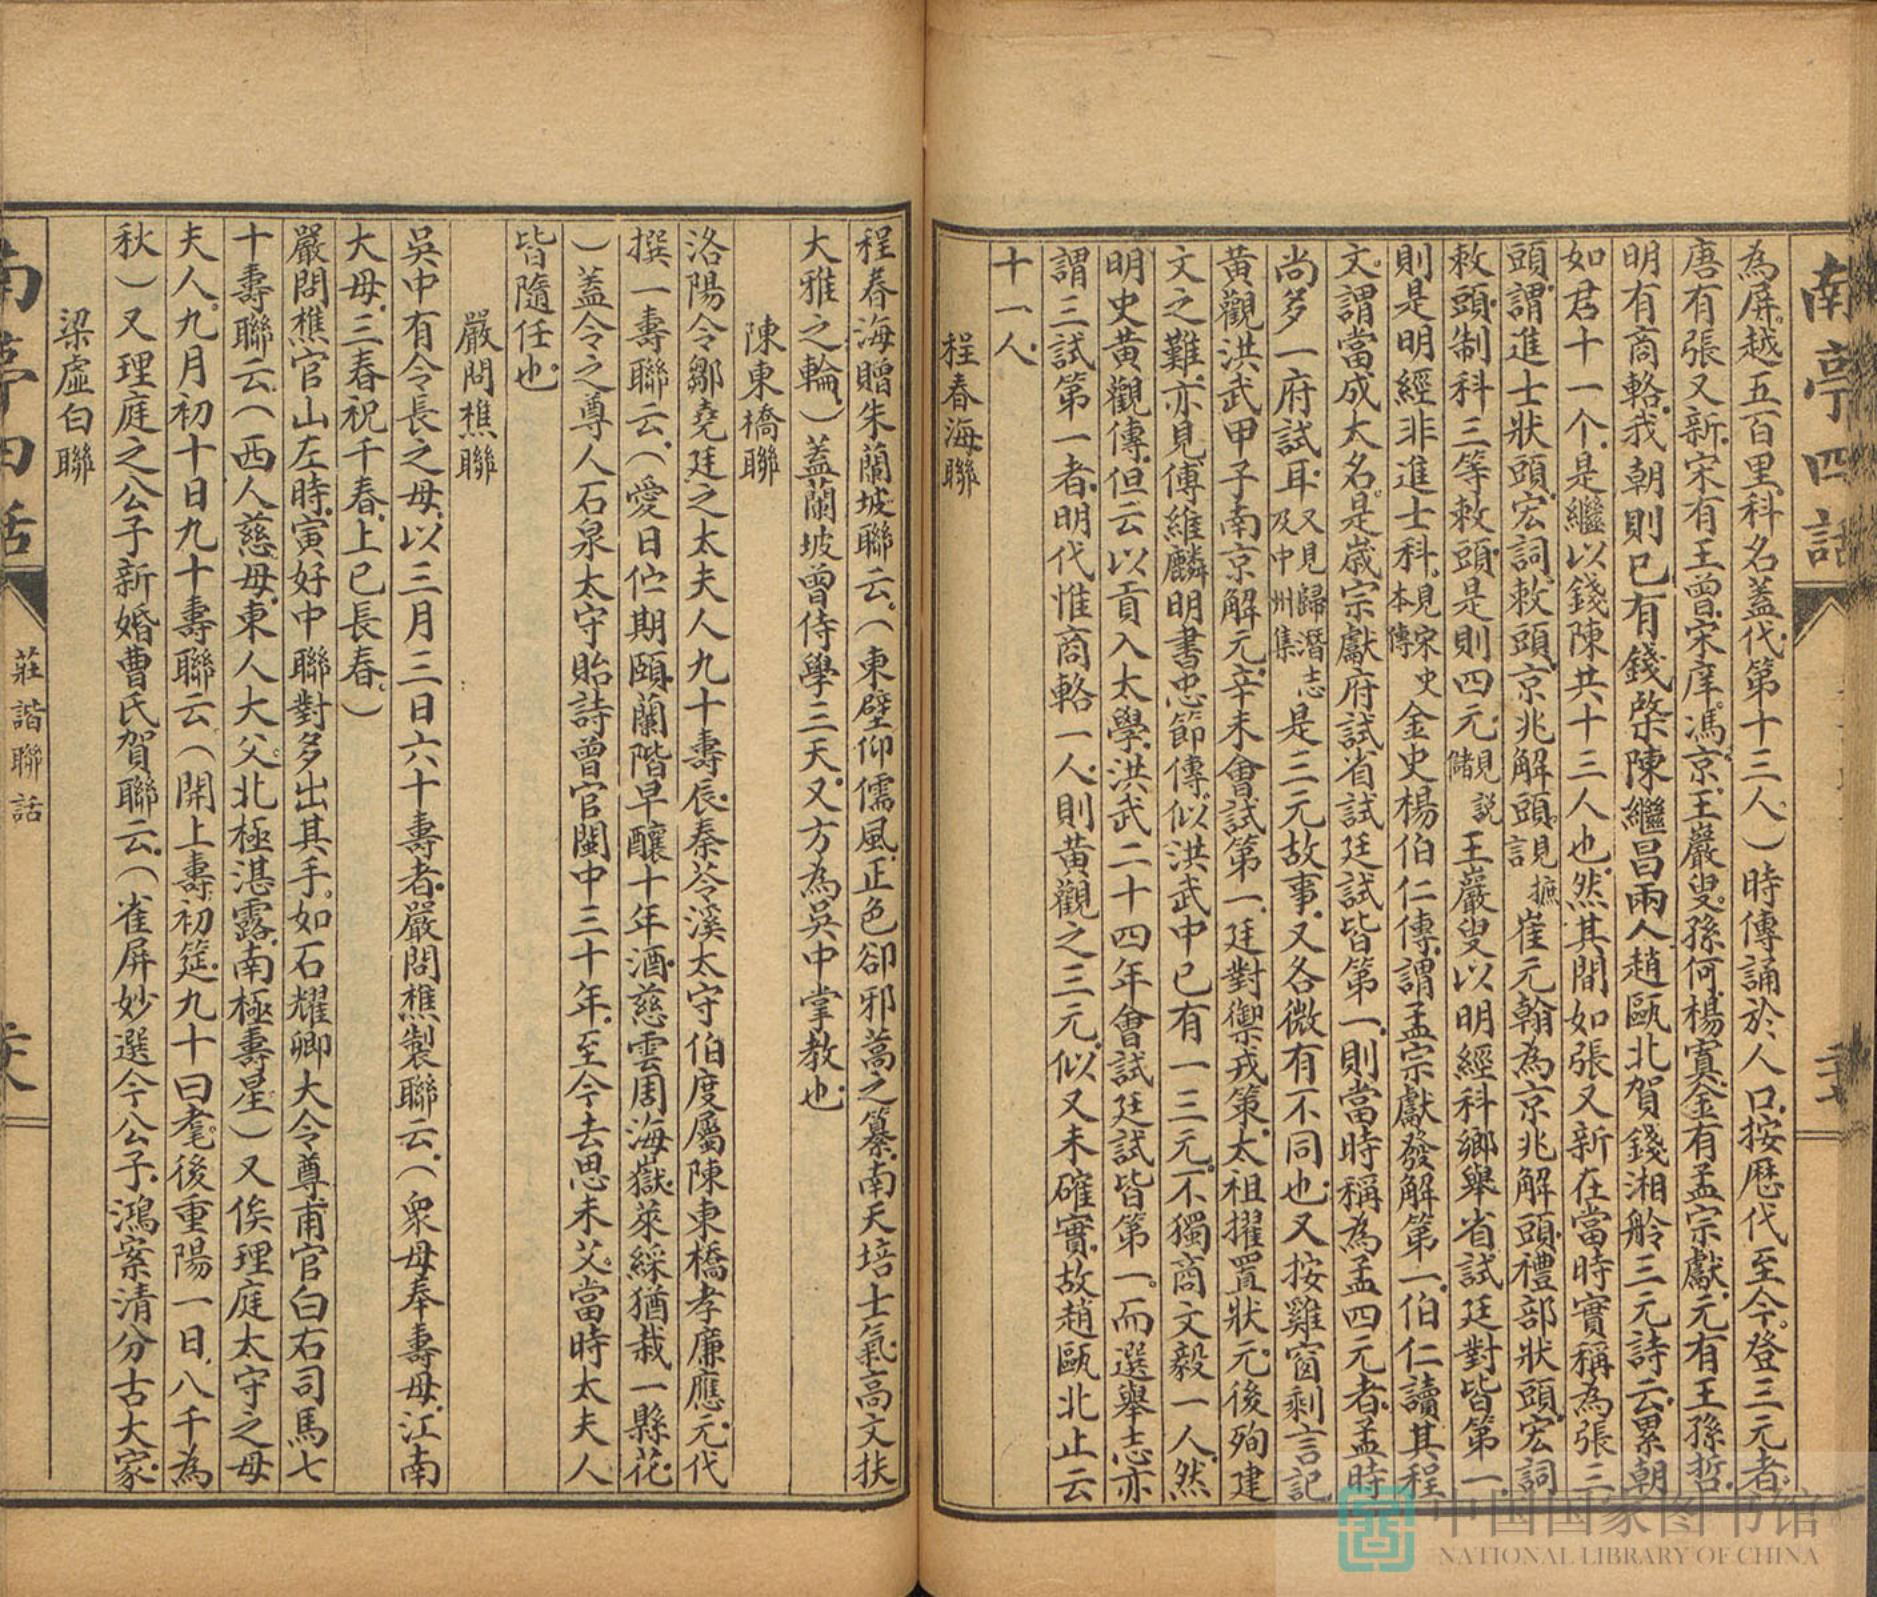 南亭四話
為屏越五百里科名蓋代第十三人）時傳誦於人口按歷代至今登三元者
唐有張又新宋有王曾宋庠馮京王巖叟孫何楊寘金有孟宗獻元有王孫哲
明有商輅我朝則已有錢棨陳繼昌兩人趙甌北賀錢湘舲三元詩云累朝
如君十一个是繼以錢陳共十三人也然其間如張又新在當時實稱為張三
頭謂進士狀頭宏詞敕頭京兆解頭見摭言崔元翰為京兆解頭禮部狀頭宏詞
敕頭制科三等敕頭是則四元見儲說王巖叟以明經科鄉舉省試廷對皆第一
則是明經非進士科見宋史本傳金史楊伯仁傳謂孟宗獻發解第一伯仁讀其程
文謂當成大名是歲宗獻府試省試廷試皆第一則當時稱為孟四元者孟時
尚多一府試耳又見歸潛志及中州集是三元故事又各微有不同也又按雞窗剩言記
黃觀洪武甲子南京解元辛未會試第一廷對禦戎策太祖擢置狀元後殉建
文之難亦見傅維麟明書忠節傳似洪武中已有一三元不獨商文毅一人然
明史黃觀傳但云以貢入太學洪武二十四年會試廷試皆第一而選舉志亦
謂三試第一者明代惟商輅一人則黃觀之三元似又未確實故趙甌北止云
十一人
程春海聯
程春海贈朱蘭坡聯云（東壁仰儒風正色卻邪蒿之纂南天培士氣高文扶
大雅之輪）蓋蘭坡曾侍學三天又方為吳中掌教也
陳東橋聯
洛陽令鄒堯廷之太夫人九十壽辰秦苓溪太守伯度屬陳東橋孝廉應元代
撰一壽聯云（愛日伫期頤蘭階早釀十年酒慈雲周海嶽萊綵猶栽一縣花
）蓋令之尊人石泉太守貽詩曾官閩中三十年至今去思未艾當時太夫人
皆隨任也
嚴問樵聯
吳中有令長之母以三月三日六十壽者嚴問樵製聯云（眾母奉壽母江南
大母三春祝千春上巳長春）
嚴問樵官山左時寅好中聯對多出其手如石耀卿大令尊甫官白右司馬七
十壽聯云（西人慈母東人大父北極湛露南極壽星）又俟理庭太守之母
夫人九月初十日九十壽聯云（開上壽初筵九十曰耄後重陽一日八千為
秋）又理庭之公子新婚曹氏賀聯云（雀屏妙選今公子鴻案清分古大家
梁虛白聯
南亭四話
莊諧聯話